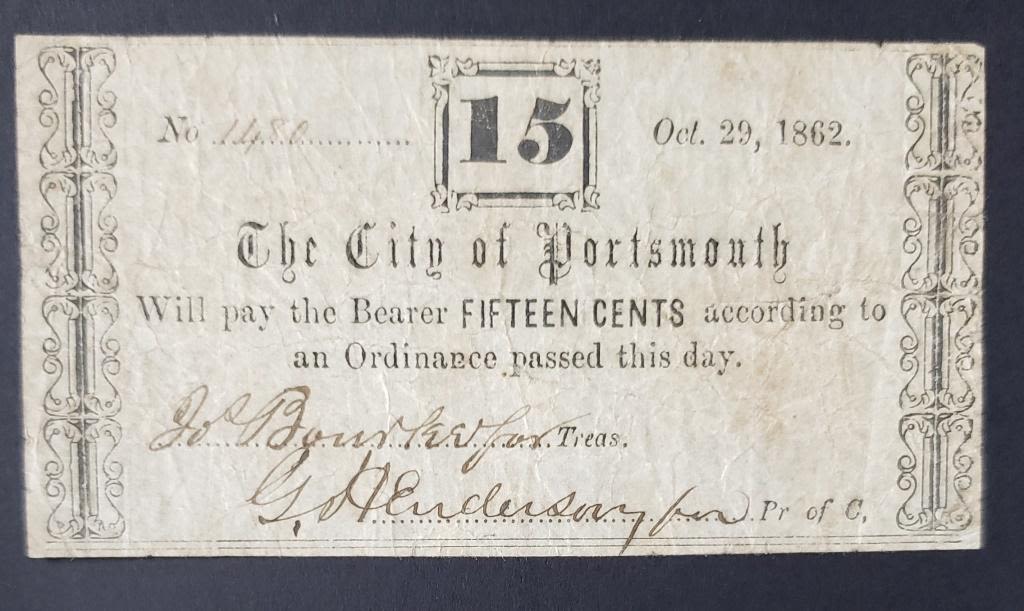 No 1480 15 Oct. 29, 1862.
The City of Portsmouth
Will pay the Bearer FIFTEEN CENTS according to
an Ordinance passed this day.
Jos Bourke for Treas.
G. Henderson, for Pr of C,